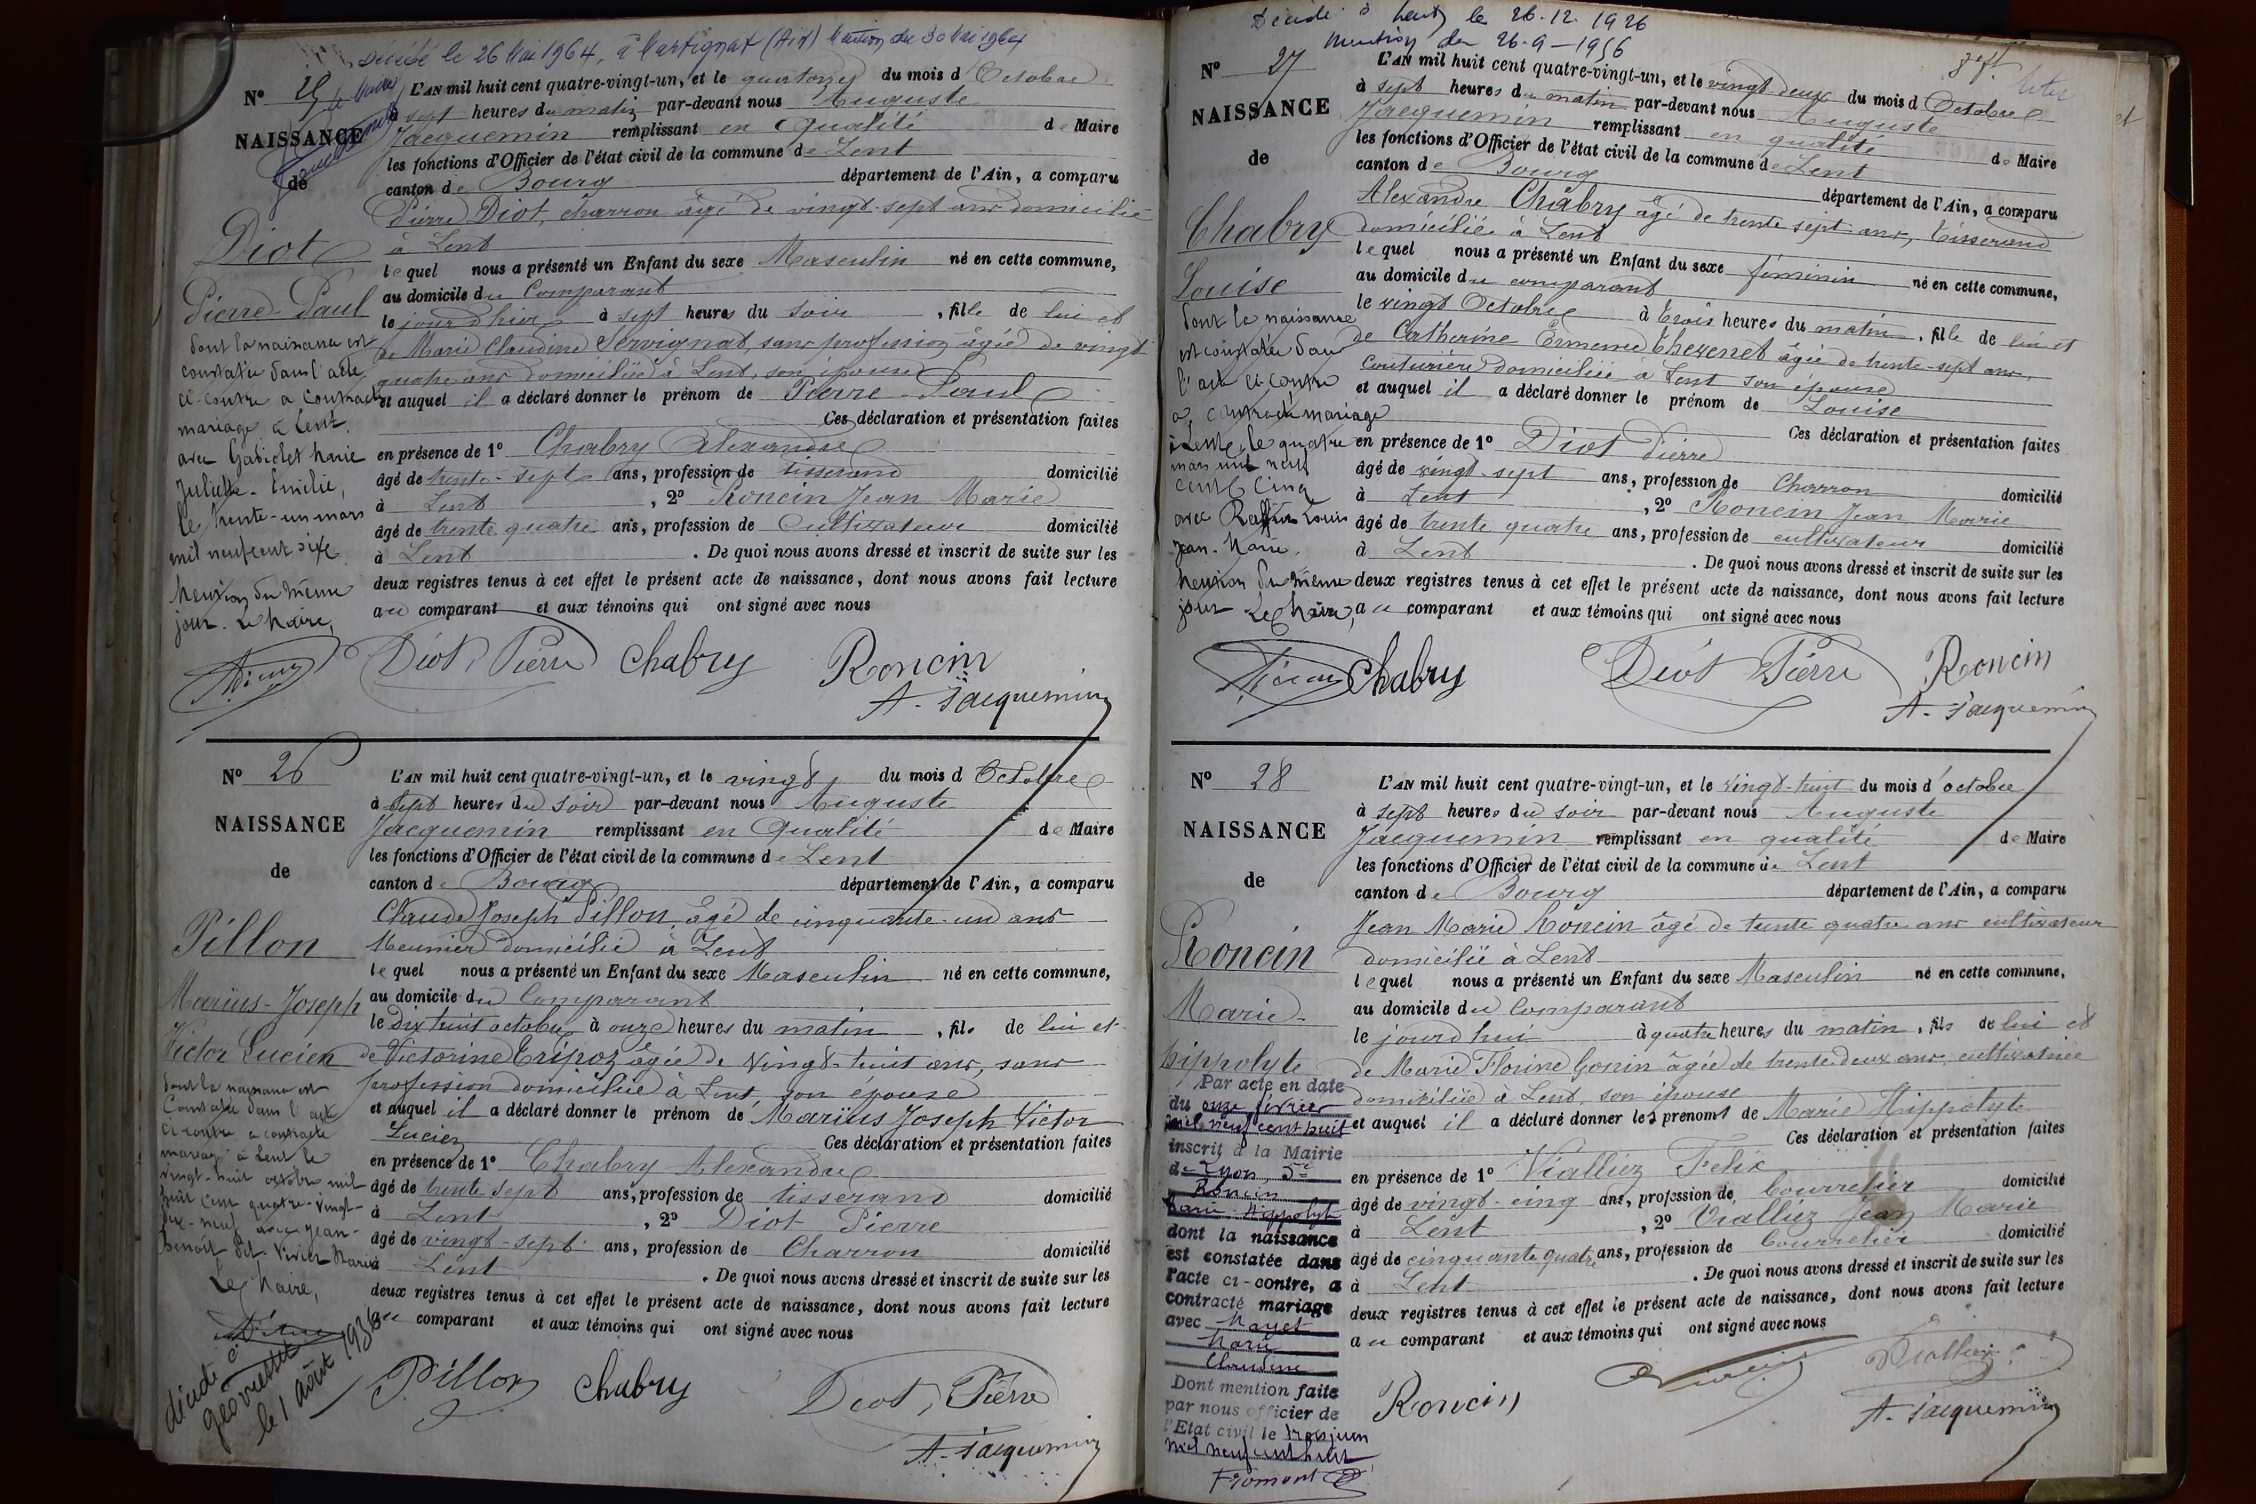 décédé le 26 Mai 1964, à Martignat (Ain) Mention du 30 Mai 1964
Nº 25
NAISSANCE
de
Diot
Pierre-Paul
dont la naissance est
constatée dans l'acte
ci-contre a contracté
mariage à Lent
avec Gabidet Marie
Juliette-Emilie,
le trente-un mars
mil neuf cent six
Mention du même
jour. Le Maire,
L'AN mil huit cent quatre-vingt-un, et le quatorze du mois d Octobre
à sept heures du matin par-devant nous Auguste
Jacquemin remplissant en qualité de Maire
les fonctions d'Officier de l'état civil de la commune de Lent
canton de Bourg département de l'Ain, a comparu
Pierre Diot, charron âgé de vingt-sept ans domicilié
à Lent
lequel nous a présenté un Enfant du sexe Masculin né en cette commune,
au domicile du Comparant
le jour d'hier à sept heures du soir, fils de lui et
de Marie Claudine Servignat, sans profession âgée de vingt
quatre ans domiciliée à Lent, son épouse
et auquel il a déclaré donner le prénom de Pierre Paul
Ces déclaration et présentation faites
en présence de 1º Chabry Alexandre
âgé de trente-sept ans, profession de tisserand domicilié
à Lent, 2º Roncin Jean Marie
âgé de trente quatre ans, profession de Cultivateur domicilié
à Lent. De quoi nous avons dressé et inscrit de suite sur les
deux registres tenus à cet effet le présent acte de naissance, dont nous avons fait lecture
au comparant et aux témoins qui ont signé avec nous
Diot Pierre Chabry Roncin
A. Jacquemin
Nº 26
NAISSANCE
de
Pillon
Marius-Joseph
Victor Lucien
dont la naissance est
constatée dans l'acte
ci-contre a contracté
mariage à Lent le
vingt-huit octobre mil
huit cent quatre-vingt-
dix-neuf avec Jean-
Benoît dit Vivier Marie
Le Maire,
décédé à
Géovreissiat
le 1 août 1936
L'AN mil huit cent quatre-vingt-un, et le vingt du mois d Octobre
à sept heures du soir par-devant nous Auguste
Jacquemin remplissant en qualité de Maire
les fonctions d'Officier de l'état civil de la commune de Lent
canton de Bourg département de l'Ain, a comparu
Claude Joseph Pillon, âgé de cinquante-un ans
Meunier domicilié à Lent
lequel nous a présenté un Enfant du sexe Masculin né en cette commune,
au domicile du Comparant
le dix huit octobre à onze heures du matin, fils de lui et
de Victorine Tripoz âgée de vingt-huit ans, sans
profession domiciliée à Lent, son épouse
et auquel il a déclaré donner le prénom de Marius Joseph Victor
Lucien Ces déclaration et présentation faites
en présence de 1º Chabry Alexandre
âgé de trente sept ans, profession de tisserand domicilié
à Lent, 2º Diot Pierre
âgé de vingt-sept ans, profession de Charron domicilié
à Lent. De quoi nous avons dressé et inscrit de suite sur les
deux registres tenus à cet effet le présent acte de naissance, dont nous avons fait lecture
au comparant et aux témoins qui ont signé avec nous
Pillon Chabry Diot, Pierre
A. Jacquemin
Décédé à Lent le 26.12.1926
Mention du 26-9-1956
Nº 27
NAISSANCE
de
Chabry
Louise
dont la naissance
est constatée dans
l'acte ci-contre
a contracté mariage
à Lent, le quatre
mars mil neuf
cent cinq
avec Raffin Louis
Jean-Marie.
Mention du même
jour Le Maire,
L'AN mil huit cent quatre-vingt-un, et le vingt deux du mois d Octobre
à sept heures du matin par-devant nous Auguste
Jacquemin remplissant en qualité de Maire
les fonctions d'Officier de l'état civil de la commune de Lent
canton de Bourg département de l'Ain, a comparu
Alexandre Chabry âgé de trente sept ans, tisserand
domicilié à Lent
lequel nous a présenté un Enfant du sexe féminin né en cette commune,
au domicile du comparant
le vingt Octobre à trois heures du matin, fille de lui et
de Catherine Ermence Thevenet âgée de trente-sept ans,
couturière domiciliée à Lent son épouse
et auquel il a déclaré donner le prénom de Louise
Ces déclaration et présentation faites
en présence de 1º Diot Pierre
âgé de vingt-sept ans, profession de Charron domicilié
à Lent, 2º Roncin Jean Marie
âgé de trente quatre ans, profession de cultivateur domicilié
à Lent. De quoi nous avons dressé et inscrit de suite sur les
deux registres tenus à cet effet le présent acte de naissance, dont nous avons fait lecture
au comparant et aux témoins qui ont signé avec nous
Chabry Diot Pierre Roncin
A. Jacquemin
Nº 28
NAISSANCE
de
Roncin
Marie-
Hippolyte
Par acte en date
du onze février
mil neuf cent huit
inscrit à la Mairie
de Lyon, 5e
Roncin
Marie Hippolyte
dont la naissance
est constatée dans
l'acte ci-contre, a
contracté mariage
avec Mayet
Marie
Claudine
Dont mention faite
par nous officier de
l'Etat civil le trois juin
mil neuf cent huit
Fromont
L'AN mil huit cent quatre-vingt-un, et le vingt-huit du mois d'octobre
à sept heures du soir par-devant nous Auguste
Jacquemin remplissant en qualité de Maire
les fonctions d'Officier de l'état civil de la commune de Lent
canton de Bourg département de l'Ain, a comparu
Jean Marie Roncin âgé de trente quatre ans cultivateur
domicilié à Lent
lequel nous a présenté un Enfant du sexe Masculin né en cette commune,
au domicile du Comparant
le jourd'hui à quatre heures du matin, fils de lui et
de Marie Florine Gonin âgée de trente-deux ans, cultivatrice
domiciliée à Lent, son épouse
et auquel il a déclaré donner les prénoms de Marie Hippolyte
Ces déclaration et présentation faites
en présence de 1º Vialliez Felix
âgé de vingt-cinq ans, profession de Courretier domicilié
à Lent, 2º Vialliez Jean Marie
âgé de cinquante quatre ans, profession de Courretier domicilié
à Lent. De quoi nous avons dressé et inscrit de suite sur les
deux registres tenus à cet effet le présent acte de naissance, dont nous avons fait lecture
au comparant et aux témoins qui ont signé avec nous
Roncin Vialliez
A. Jacquemin